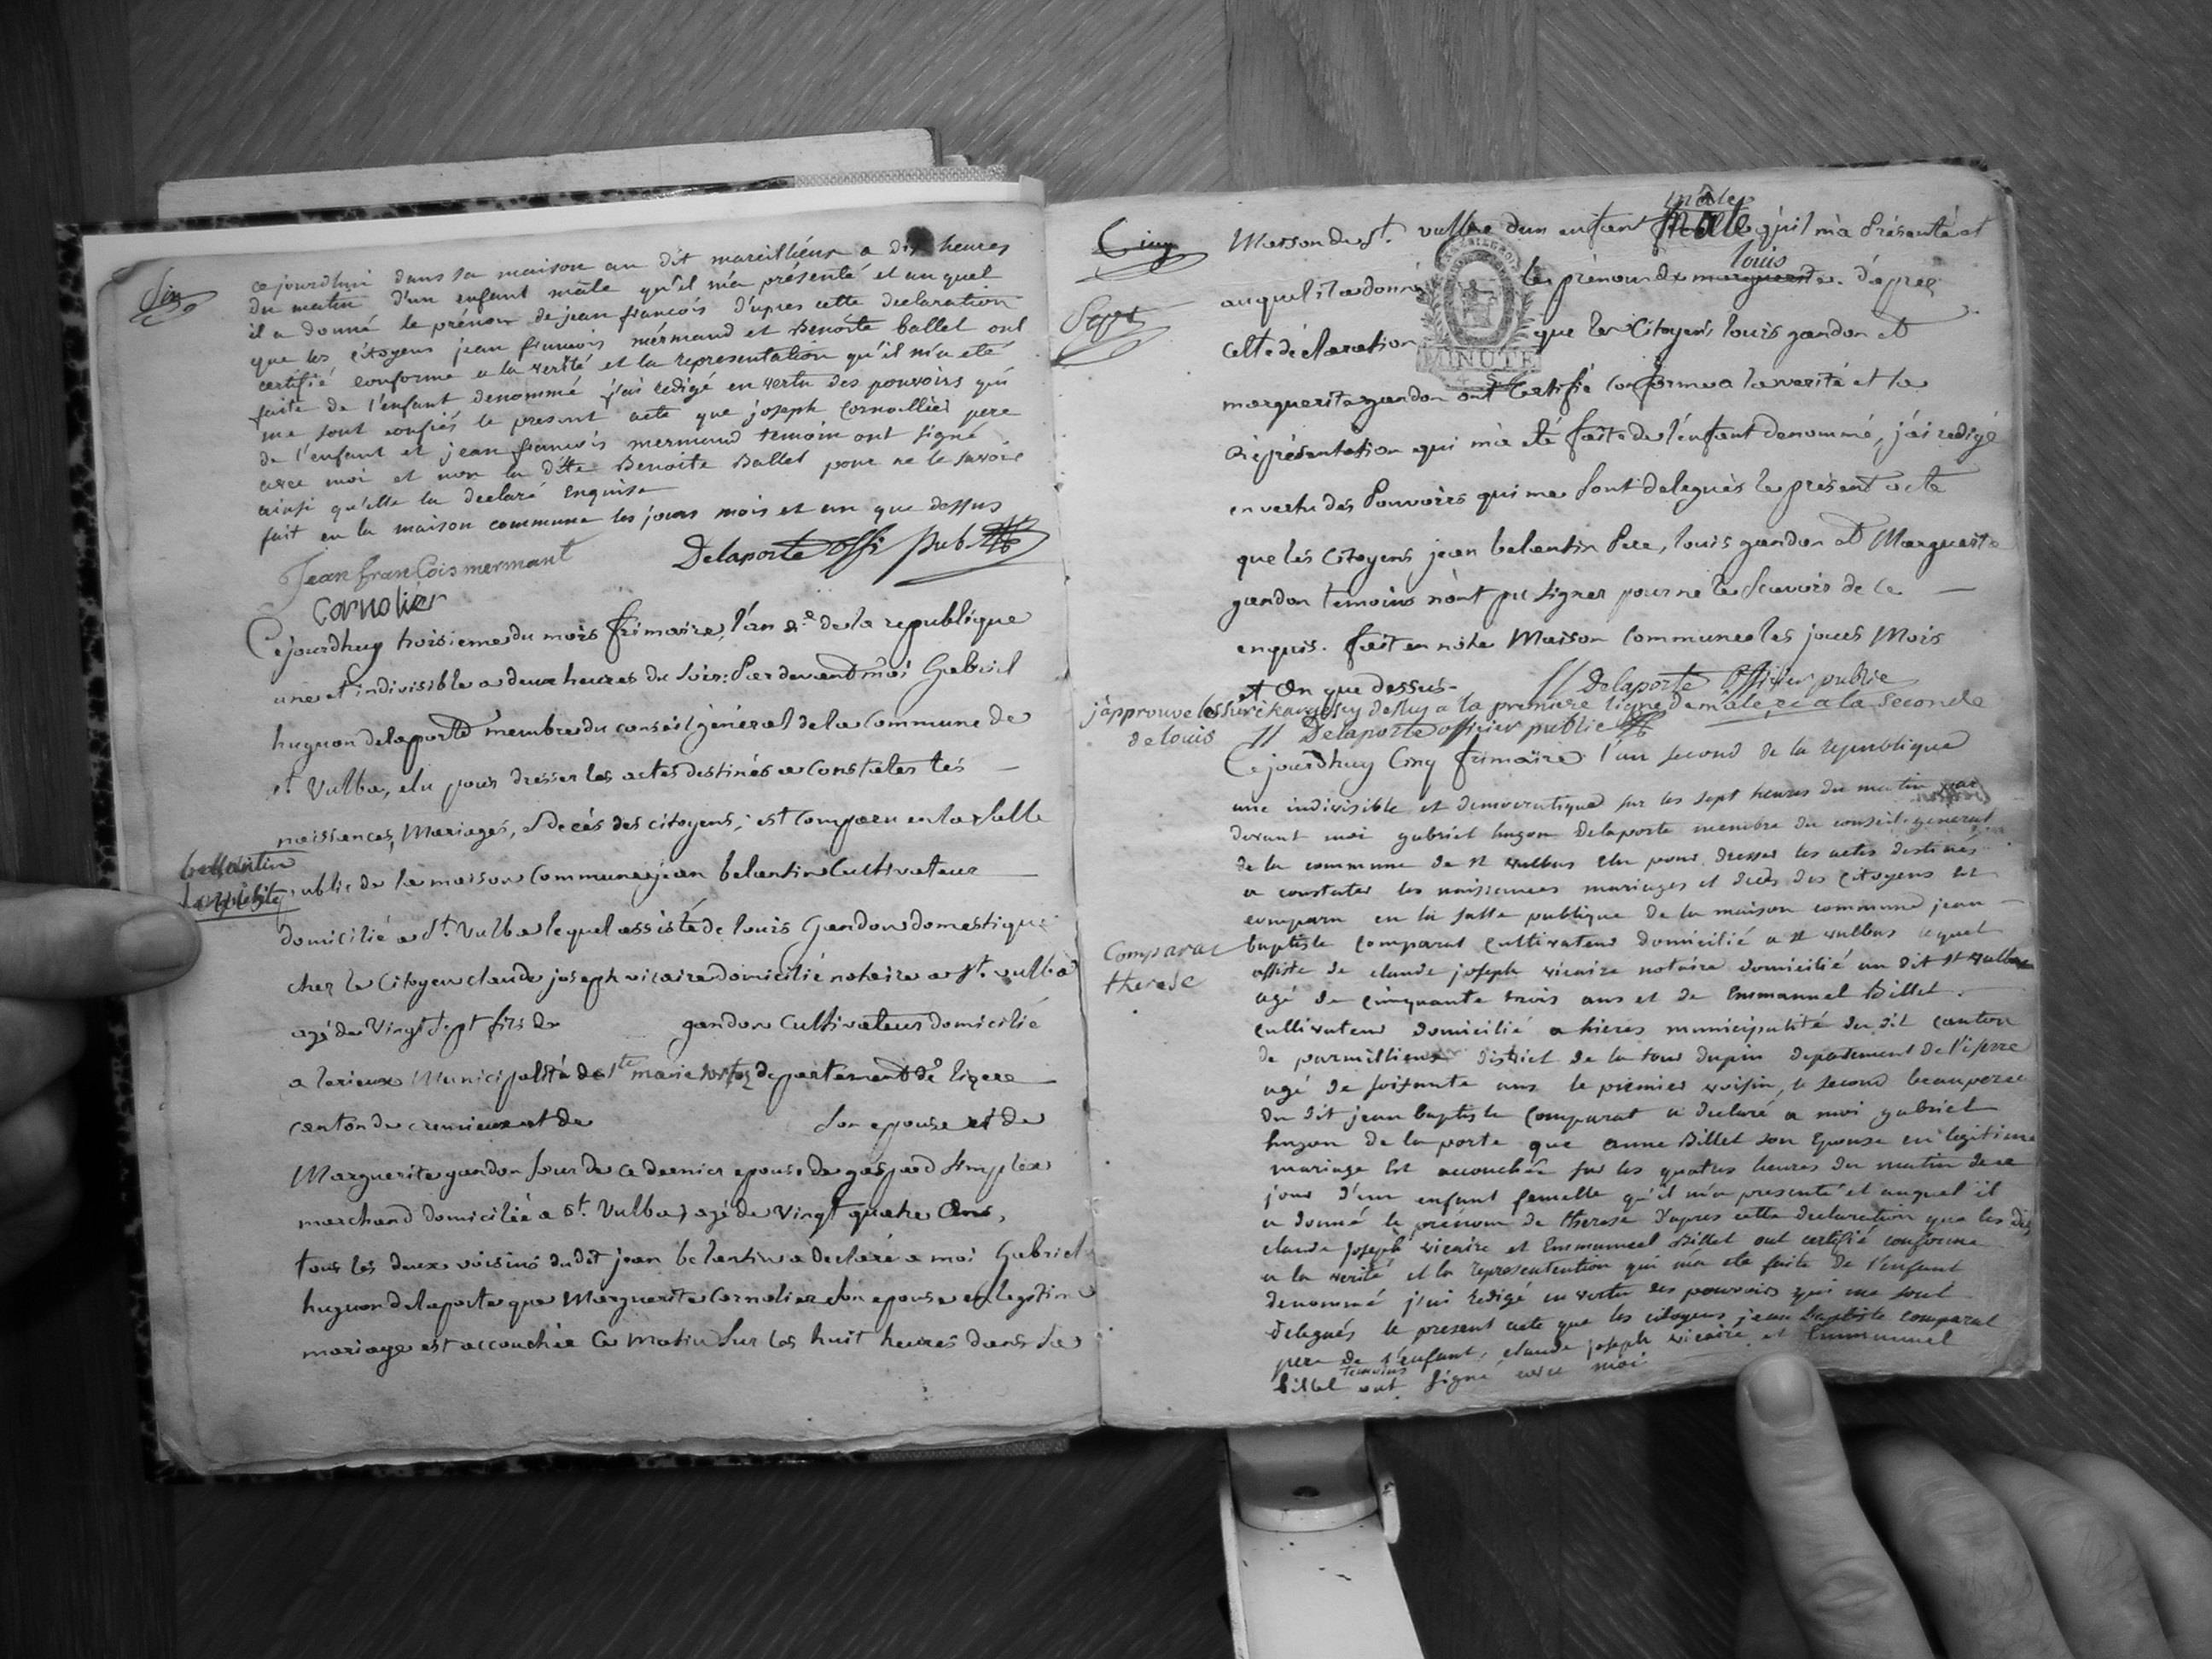 Six
ce jourdhui dans sa maison au dit mareillieux a dix heures
du matin d'un enfant mâle qu'il m'a présenté et auquel
il a donné le prénom de jean françois d'apres cette declaration
que les citoyens jean francois mérmand et Benoite ballet ont
certifié conforme a la verité et la representation qu'il m'a eté
faite de l'enfant denommé j'ai redigé en vertu des pouvoirs qui
me sont confiés le present acte que joseph Cornollier pere
de l'enfant et jean françois mermand temoin ont signé
avec moi et non la dite Benoite Ballet pour ne le savoir
ainsi qu'elle la declaré enquise
fait en la maison commune les jours mois et an que dessus
Jean franCois mermant
Delaporte offi pub
Cornolier
Cejourdhuy troisieme du mois frimaire, l'an 2.e de la republique
une et indivisible a deux heures du soir: Par devant moi Gabriel
hugnon delaporte membre du conseil général de la Commune de
st. Vulba, elu pour dresser les actes destinés a Constater les
naissances, Mariages, deces des citoyens; est Comparu en la Salle
publie de la maison Commune jean belantin Cultivateur
domicilié a St. Vulba lequel assisté de louis Gandon domestique
chez le Citoyen claude joseph vicaire domicilié notaire a St. vulba
agé de Vingt sept fils de gandon Cultivateur domicilié
a lerieux Municipalité de Ste marie departement de lizere
canton de cremieux et de son epouse et de
Marguerite gandon sœur de ce dernier epouse de gaspard simplex
marchand domiciliée a St. Vulba, agé de Vingt quatre Ans,
tous les deux voisins dudit jean belantin a declaré a moi Gabriel
hugnon delaporte que Marguerite Cornolier son epouse en legitime
mariage est accouchée Ce Matin Sur les huit heures dans sa
Cinq
Sept
Maison de St. vulba d'un enfant mâle qu'il m'a Présenté et
mâle
auquel il a donné le prénom de marguerite. d'apres
louis
cette déclaration que les Citoyens louis gandon et
MINUTE
marguerite gandon ont Certifié Conforme a la verité et la
réprésentation qui m'a eté faite de l'enfant denommé, j'ai redigé
en vertu des Pouvoirs qui me sont delegués le présent acte
que les Citoyens jean belantin Pere, louis gandon et Marguerite
gandon temoins n'ont pu signer pour ne le Scavoir de ce
enquis. fait en notre Maison Commune les jours Mois
et An que dessus. Delaporte Officier publie
j'approuve les surchargés cy dessus a la premiere ligne de mâle, et a la seconde
de louis Delaporte officier public
Cejourdhuy Cinq frimaire l'an second de la republique
une indivisible et democratique sur les sept heures du matin par
devant moi gabriel hugon Delaporte membre du conseil general
de la commune de st vulbas elu pour dresser les actes destinés
a constater les naissances mariages et deces des Citoyens est
comparu en la salle publique de la maison commune jean
Comparat
therese
baptiste Comparat Cultivateur domicilié a st vulbas lequel
assisté de claude joseph vicaire notaire domicilié au dit st vulbas
agé de cinquante trois ans et de Emmanuel Billet
cultivateur domicilié a hieres municipalité du dit canton
de parmillieux district de la tour dupin departement de l'iserre
agé de soixante ans le premier voisin, le second beaupere
du dit jean baptiste Comparat a declaré a moi gabriel
hugon de la porte que anne Billet son Epouse en legitime
mariage est accouchée sur les quatres heures du matin de ce
jour d'un enfant femelle qu'il m'a presenté et auquel il
a donné le prénom de therese d'apres cette declaration que les dits
claude joseph vicaire et Emmanuel Billet ont certifié conforme
a la verité et la representention qui m'a ete faite de l'enfant
denommé j'ai redigé en vertu des pouvoirs qui me sont
delegués le present acte que les citoyens jean baptiste comparat
pere de l'enfant, claude joseph vicaire et Emmanuel
billet temoins ont signé avec moi